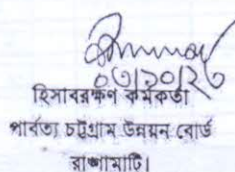 ০৩/১০/২৩
হিসাবরক্ষণ কর্মকর্তা
পার্বত্য চট্টগ্রাম উন্নয়ন বোর্ড
রাঙ্গামাটি।